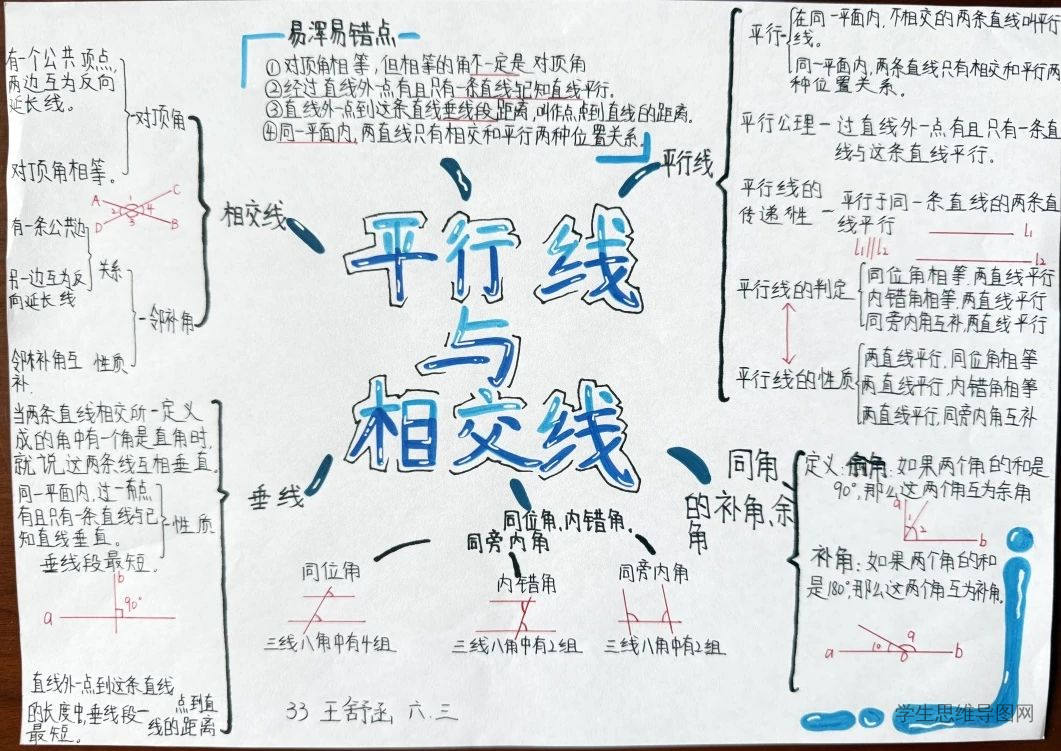 易浑易错点
①对顶角相等,但相等的角不一定是对顶角
②经过直线外一点有且只有一条直线与已知直线平行。
③直线外一点到这条直线垂线段距离,叫作点点到直线的距离。
④同一平面内,两直线只有相交和平行两种位置关系。
平行线
与
相交线
相交线
对顶角
有一个公共顶点,
两边互为反向
延长线。
对顶角相等。
A
C
D
B
1
2
3
4
有一条公共边
另一边互为反
向延长线
关系
邻补角
邻补角互
补.
性质
垂线
当两条直线相交所
成的角中有一个角是直角时,
就说,这两条线互相垂直。
定义
同一平面内,过一点
有且只有一条直线与已
知直线垂直。
性质
垂线段最短。
b
90°
a
直线外一点到这条直线
的长度中,垂线段
最短。
点到直
线的距离
同位角,内错角、
同旁内角
同位角
三线八角中有4组
内错角
三线八角中有2组
同旁内角
三线八角中有2组
平行线
平行
在同一平面内,不相交的两条直线叫平行
线。
同一平面内,两条直线只有相交和平行两
种位置关系。
平行公理
过直线外一点有且只有一条直
线与这条直线平行.
平行线的
传递性
平行于同一条直线的两条直
线平行
l₁
l₁∥l₂
l₂
平行线的判定
同位角相等,两直线平行
内错角相等,两直线平行
同旁内角互补,两直线平行
平行线的性质
两直线平行,同位角相等
两直线平行,内错角相等
两直线平行,同旁内角互补
同角
的补角、余
角
定义:余角:如果两个角的和是
90°,那么这两个角互为余角
a
1
2
b
补角:如果两个角的和
是180°,那么这两个角互为补角.
a
b
33 王舒函 六.三
学生思维导图网